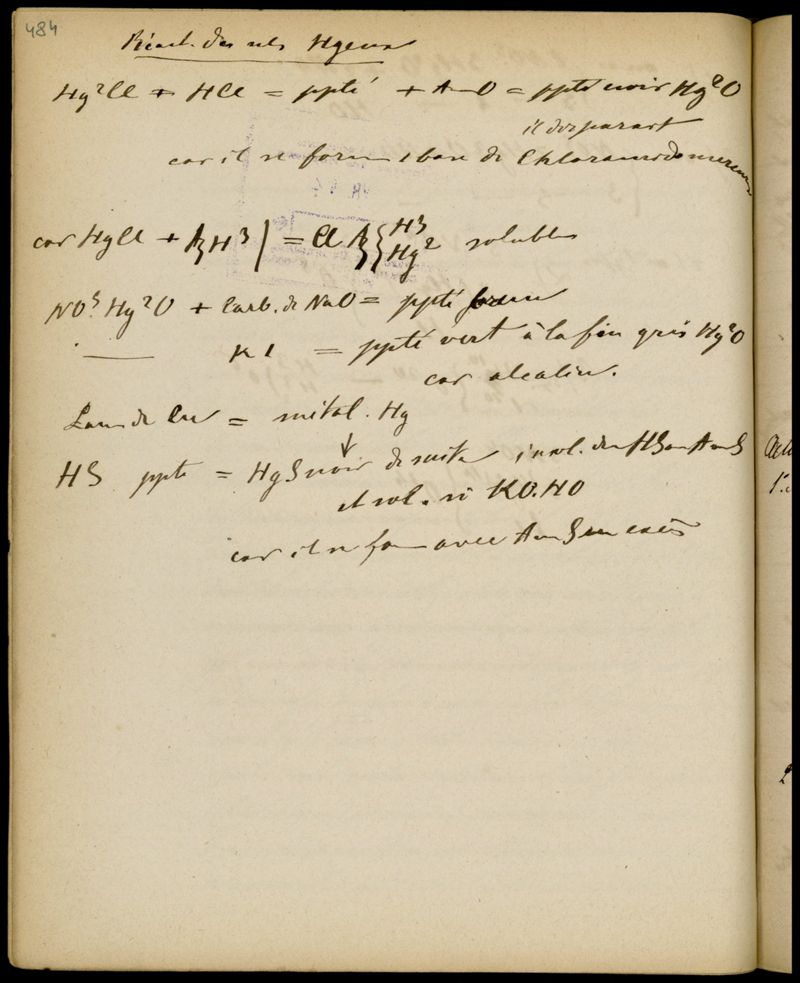 484
Réact. des sels Hgeux
Hg²Cl + HCl = ppté + AmO = ppté noir Hg²O
il disparait
car il se forme base de Chloramide mercure
car HgCl + AzH³ } = Cl Az { H³ Hg² soluble
NO⁵. Hg²O + Carb. de NaO = ppté brun
— KI = ppté vert à la fin gris Hg²O
car alcalin.
Lam de Cu = métal. Hg
HS ppté = HgS noir de suite insol. dans HS ou AmS
et sol. si KO.HO
car il se forme avec AmS en excès